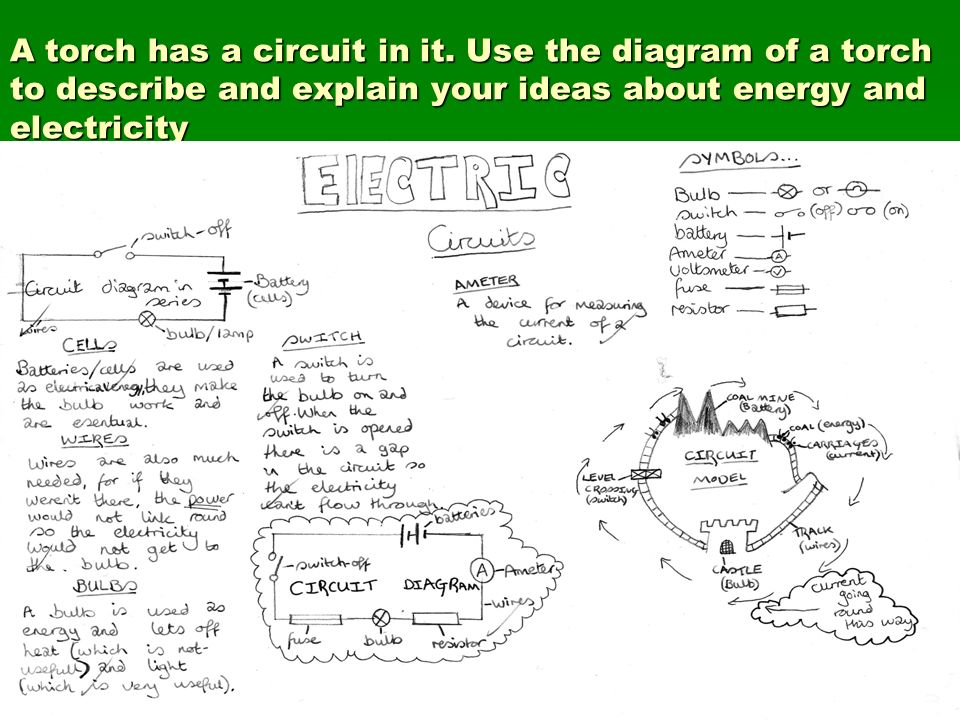 A torch has a circuit in it. Use the diagram of a torch
to describe and explain your ideas about energy and
electricity
ELECTRIC
Circuits
SYMBOLS...
Bulb or
switch (off) (on)
battery
Ameter A
Voltsmeter V
fuse
resistor
switch-off
Circuit diagram in
series
Battery
(cells)
wires
bulb/lamp
AMETER
A device for measuring
the current of a
circuit.
CELLS
Batteries/cells are used
as electrical energy, they make
the bulb work and
are esentual.
WIRES
Wires are also much
needed, for if they
weren't there, the power
would not link round
so the electricity
would not get to
the bulb.
BULBS
A bulb is used as
energy and lets off
heat (which is not-
usefull) and light
(which is very useful).
SWITCH
A switch is
used to turn
the bulb on and
off. When the
switch is opened
there is a gap
in the circuit so
the electricity
can't flow through.
batteries
switch-off
CIRCUIT DIAGRAM
A
Ameter
wires
fuse
bulb
resistor
COAL MINE
(Battery)
COAL (energy)
CARRIAGES
(current)
CIRCUIT
MODEL
LEVEL
CROSSING
(switch)
TRACK
(wires)
CASTLE
(Bulb)
current
going
round
this way